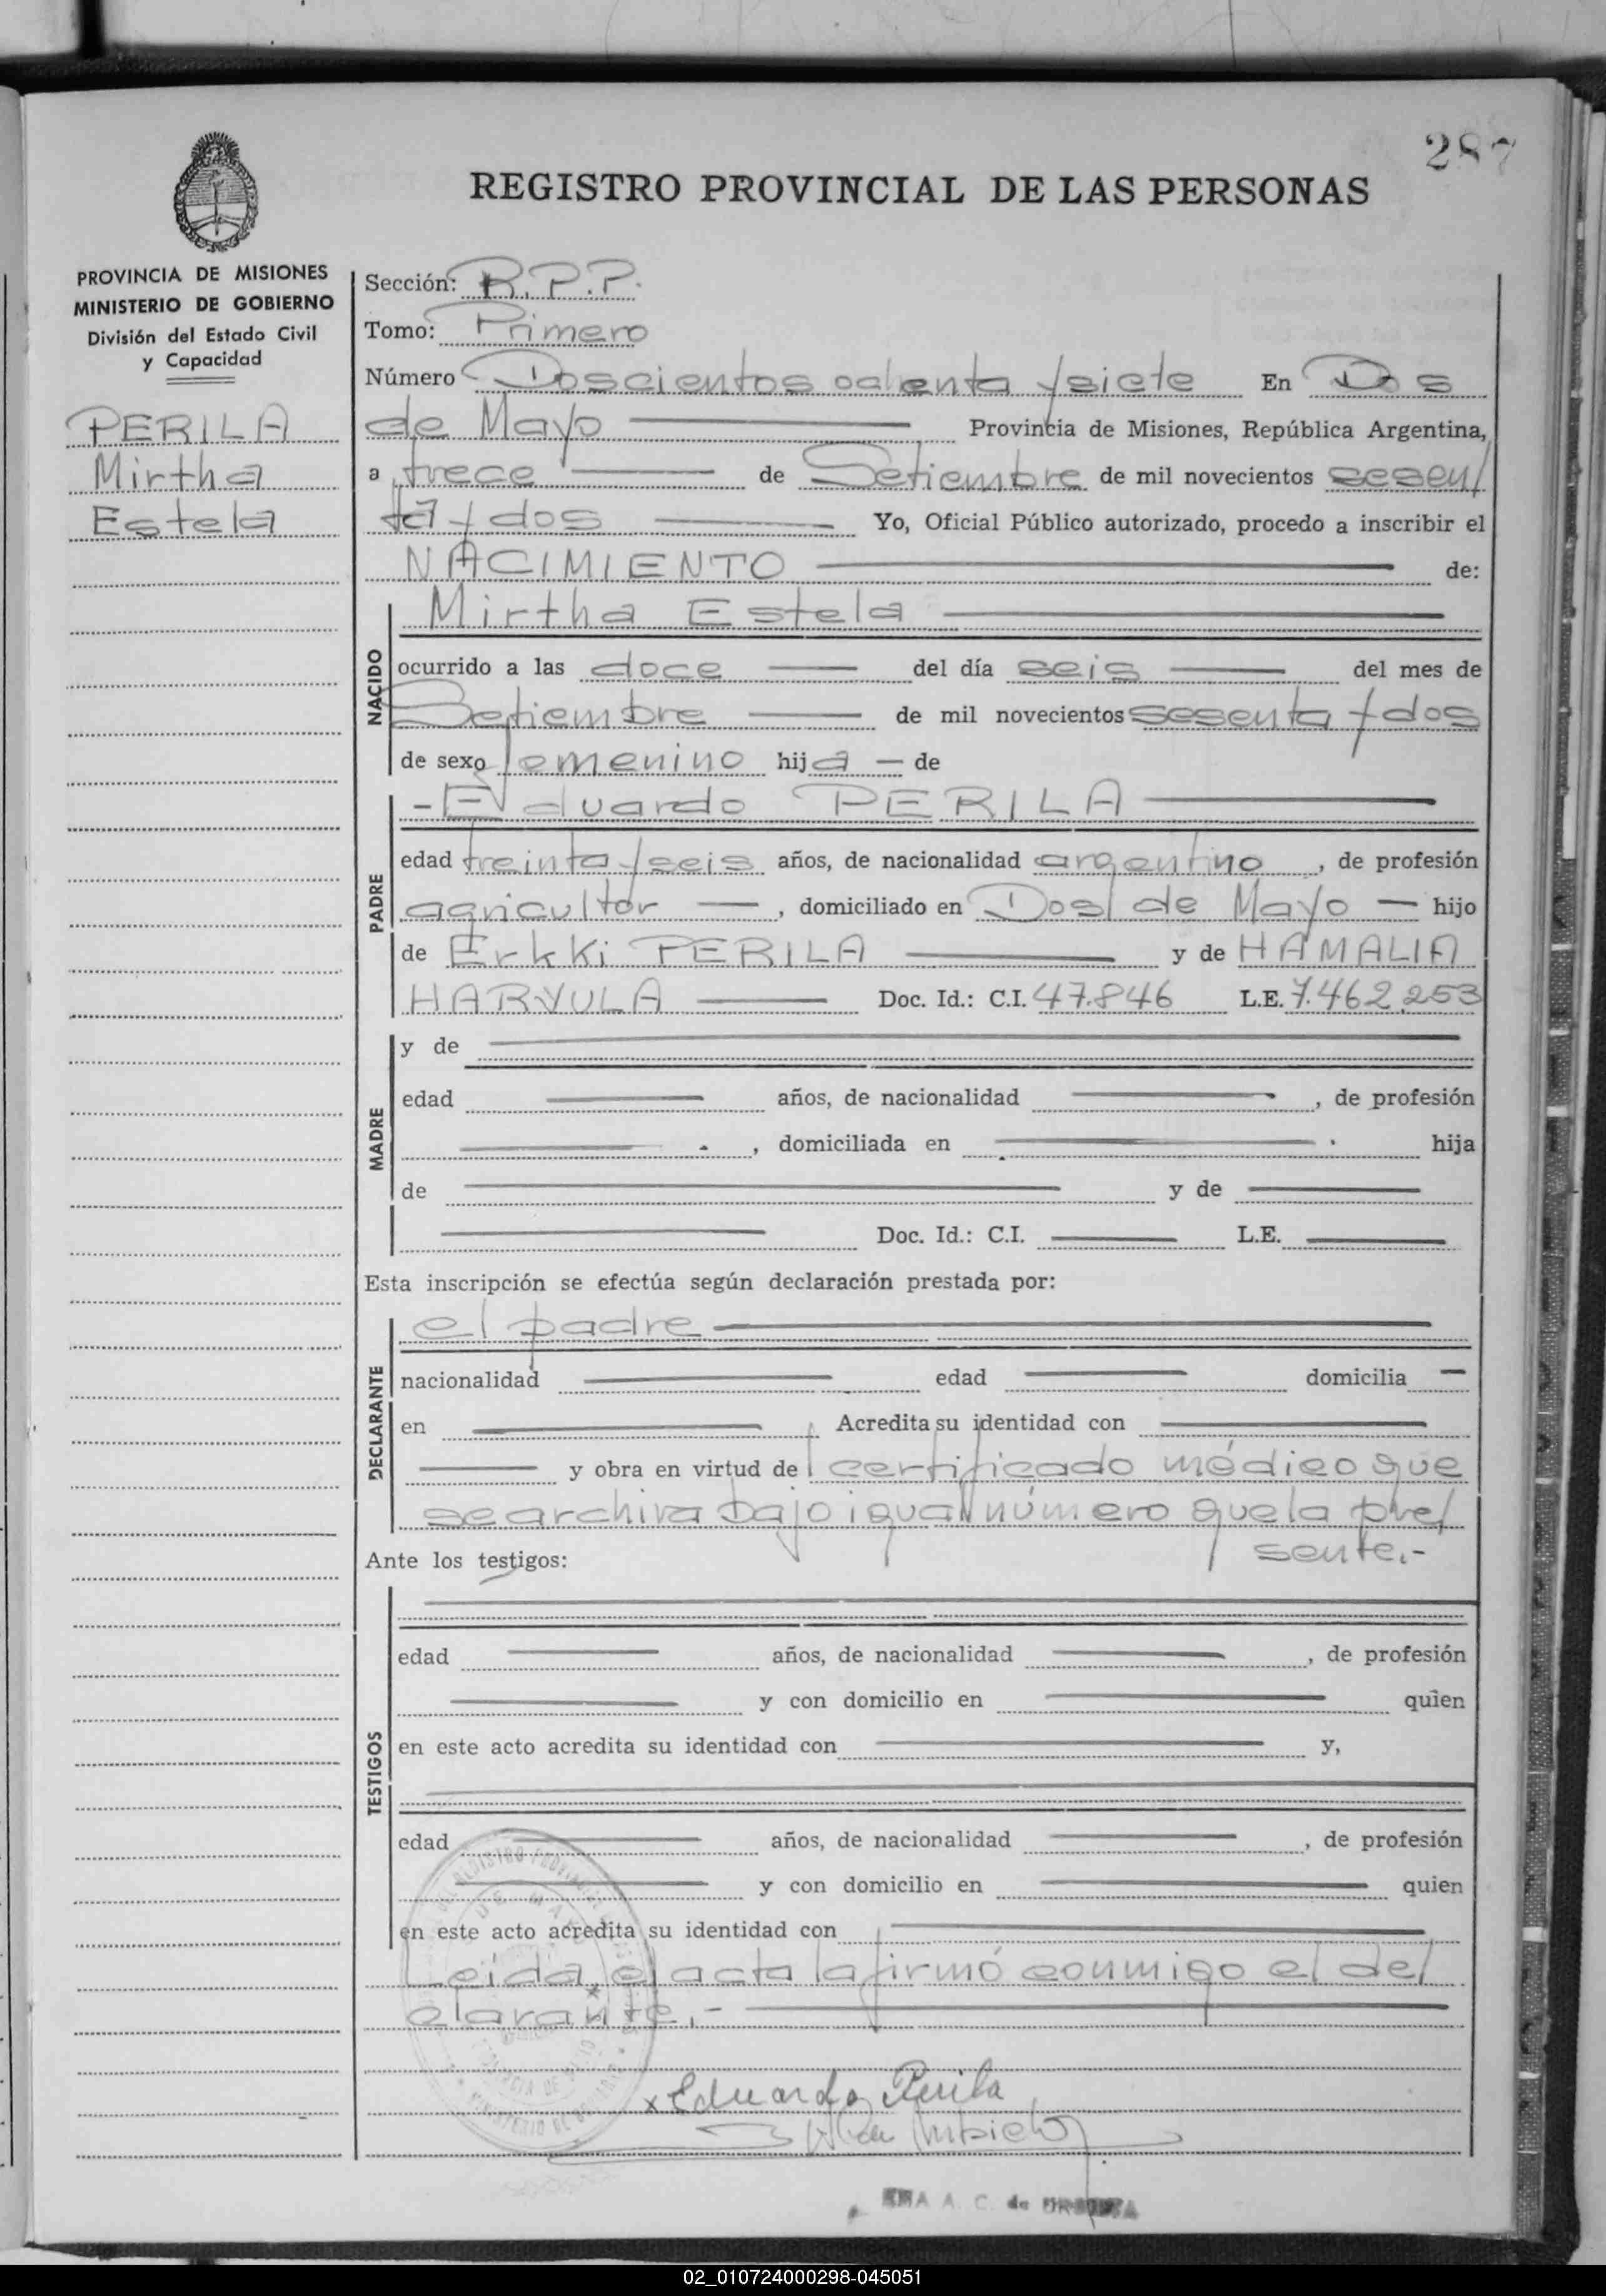 287
REGISTRO PROVINCIAL DE LAS PERSONAS
PROVINCIA DE MISIONES
MINISTERIO DE GOBIERNO
División del Estado Civil
y Capacidad
PERILA
Mirtha
Estela
Sección: R.P.P.
Tomo: Primero
Número Doscientos ochenta y siete En Dos
de Mayo Provincia de Misiones, República Argentina,
a trece de Setiembre de mil novecientos sesen/
ta y dos Yo, Oficial Público autorizado, procedo a inscribir el
NACIMIENTO de:
NACIDO
Mirtha Estela
ocurrido a las doce del día seis del mes de
Setiembre de mil novecientos sesenta y dos
de sexo femenino hija — de
PADRE
- Eduardo PERILA
edad treinta y seis años, de nacionalidad argentino, de profesión
agricultor —, domiciliado en Dos de Mayo — hijo
de Erkki PERILA y de HAMALIA
HARYULA Doc. Id.: C.I. 47.846 L.E. 7.462.253
MADRE
y de
edad años, de nacionalidad , de profesión
, domiciliada en hija
de y de
Doc. Id.: C.I. L.E.
Esta inscripción se efectúa según declaración prestada por:
DECLARANTE
el padre
nacionalidad edad domicilia —
en Acredita su identidad con
y obra en virtud de certificado médico que
se archiva bajo igual número que la pre/
sente.-
Ante los testigos:
TESTIGOS
edad años, de nacionalidad , de profesión
y con domicilio en quien
en este acto acredita su identidad con y,
edad años, de nacionalidad , de profesión
y con domicilio en quien
en este acto acredita su identidad con
Leída el acta la firmó conmigo el de/
clarante.-
x Eduardo Perila
A. C. de
02_010724000298-045051